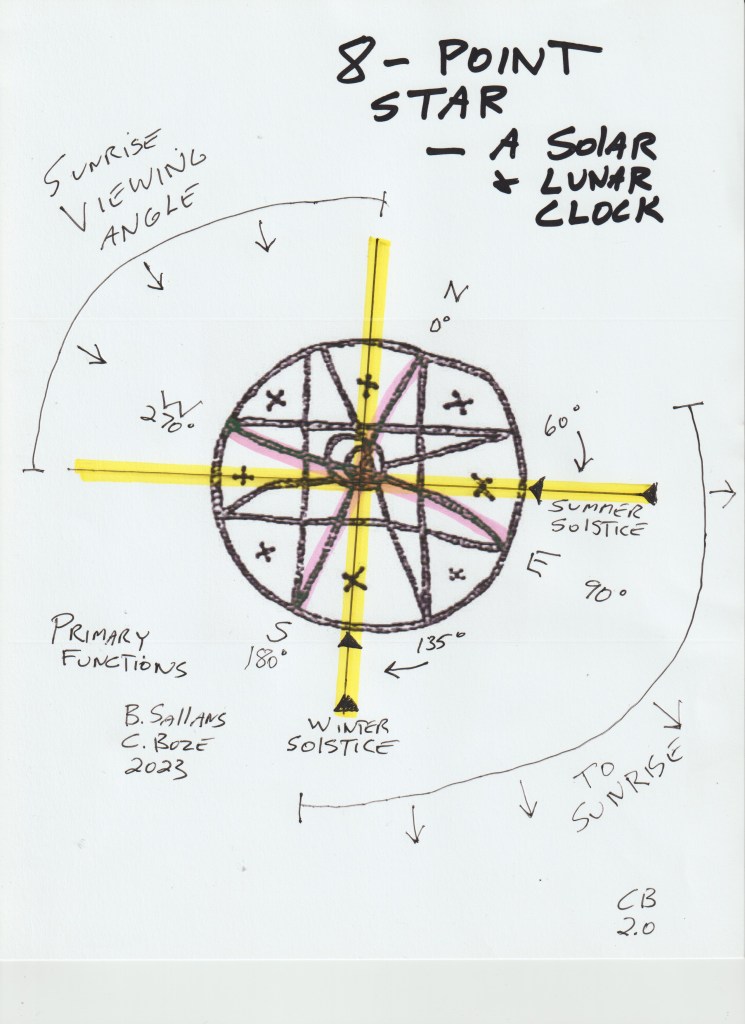 8 - POINT
STAR
— A SOLAR
& LUNAR
CLOCK
SUNRISE
VIEWING
ANGLE
N
0°
W
270°
60°
SUMMER
SOLSTICE
E
90°
S
180°
135°
PRIMARY
FUNCTIONS
B. SALLANS
C. BOZE
2023
WINTER
SOLSTICE
TO
SUNRISE
CB
2.0